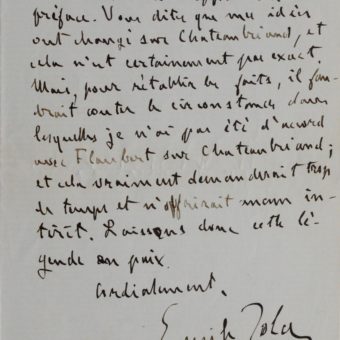 préface. Vous dites que mes idées
ont changé sur Chateaubriand, et
cela n'est certainement pas exact.
Mais, pour rétablir les faits, il fau-
drait conter les circonstances dans
lesquelles je n'ai pas été d'accord
avec Flaubert sur Chateaubriand;
et cela vraiment demanderait trop
de temps et n'offrirait mam in-
térêt. Laissons donc cette lé-
gende en paix.
Cordialement,
Emile Zola